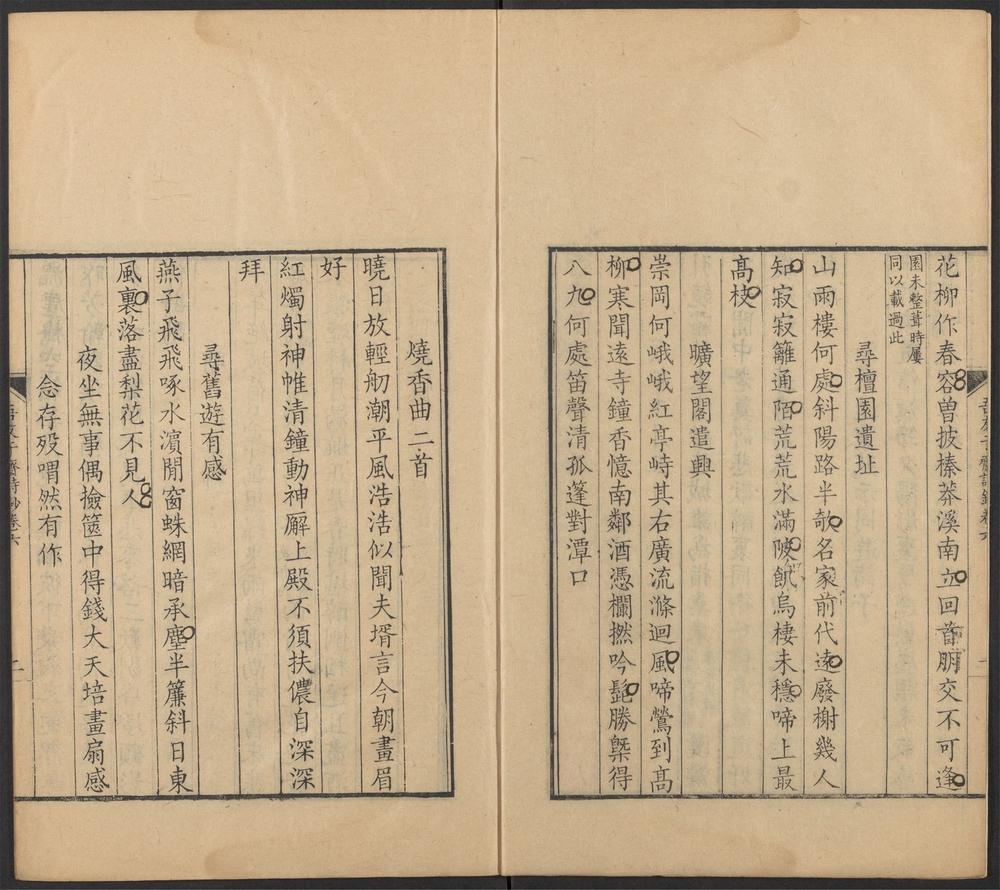 花柳作春容曾披榛莽溪南立回首朋交不可逢
園未整葺時屢
同以載過此
尋檀園遺址
山雨樓何處斜陽路半欹名家前代遠廢榭幾人
知寂寂籬通陌荒荒水滿陂飢烏棲未穩啼上最
高枝
曠望閣遣興
崇岡何峨峨紅亭峙其右廣流滌迴風啼鶯到高
柳寒聞遠寺鐘香憶南鄰酒憑欄撚吟髭勝槩得
八九何處笛聲清孤篷對潭口
燒香曲二首
曉日放輕舠潮平風浩浩似聞夫壻言今朝畫眉
好
紅燭射神帷清鐘動神廨上殿不須扶儂自深深
拜
尋舊遊有感
燕子飛飛啄水濵閒窗蛛網暗承塵半簾斜日東
風裏落盡梨花不見人
夜坐無事偶撿篋中得錢大天培畫扇感
念存歿喟然有作
齋詩鈔卷六
二